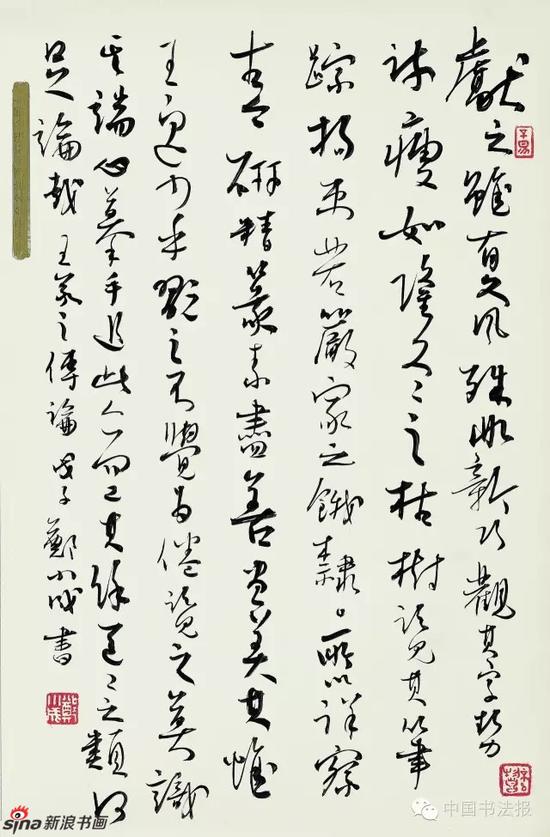 獻之雖有父風殊非新巧觀其字勢
疎瘦如隆冬之枯樹覽其筆
蹤拘束若嚴家之餓隸所以詳察
古今研精篆素盡善盡美其惟
王逸少乎翫之不覺為倦覽之莫識
其端心摹手追此人而已其餘區區之類何
足論哉 王羲之傳論 戊子 鄭小成書
鄭小成
sina新浪书画
中国书法报